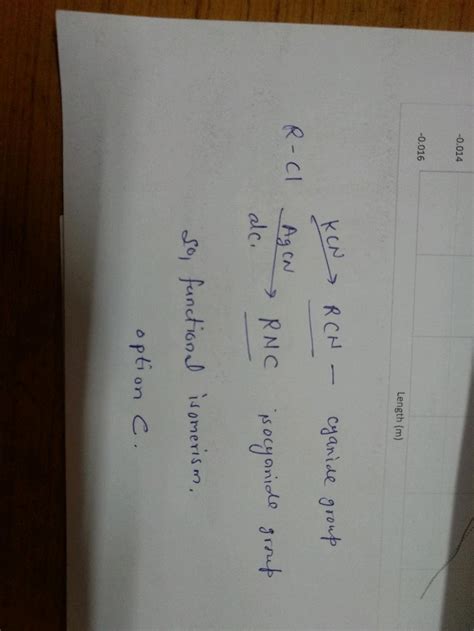 -0.014
-0.016
Length (m)
KCN → RCN — cyanide group
R-Cl
AgCN → RNC isocyanide group
alc.
So, functional isomerism.
option C.